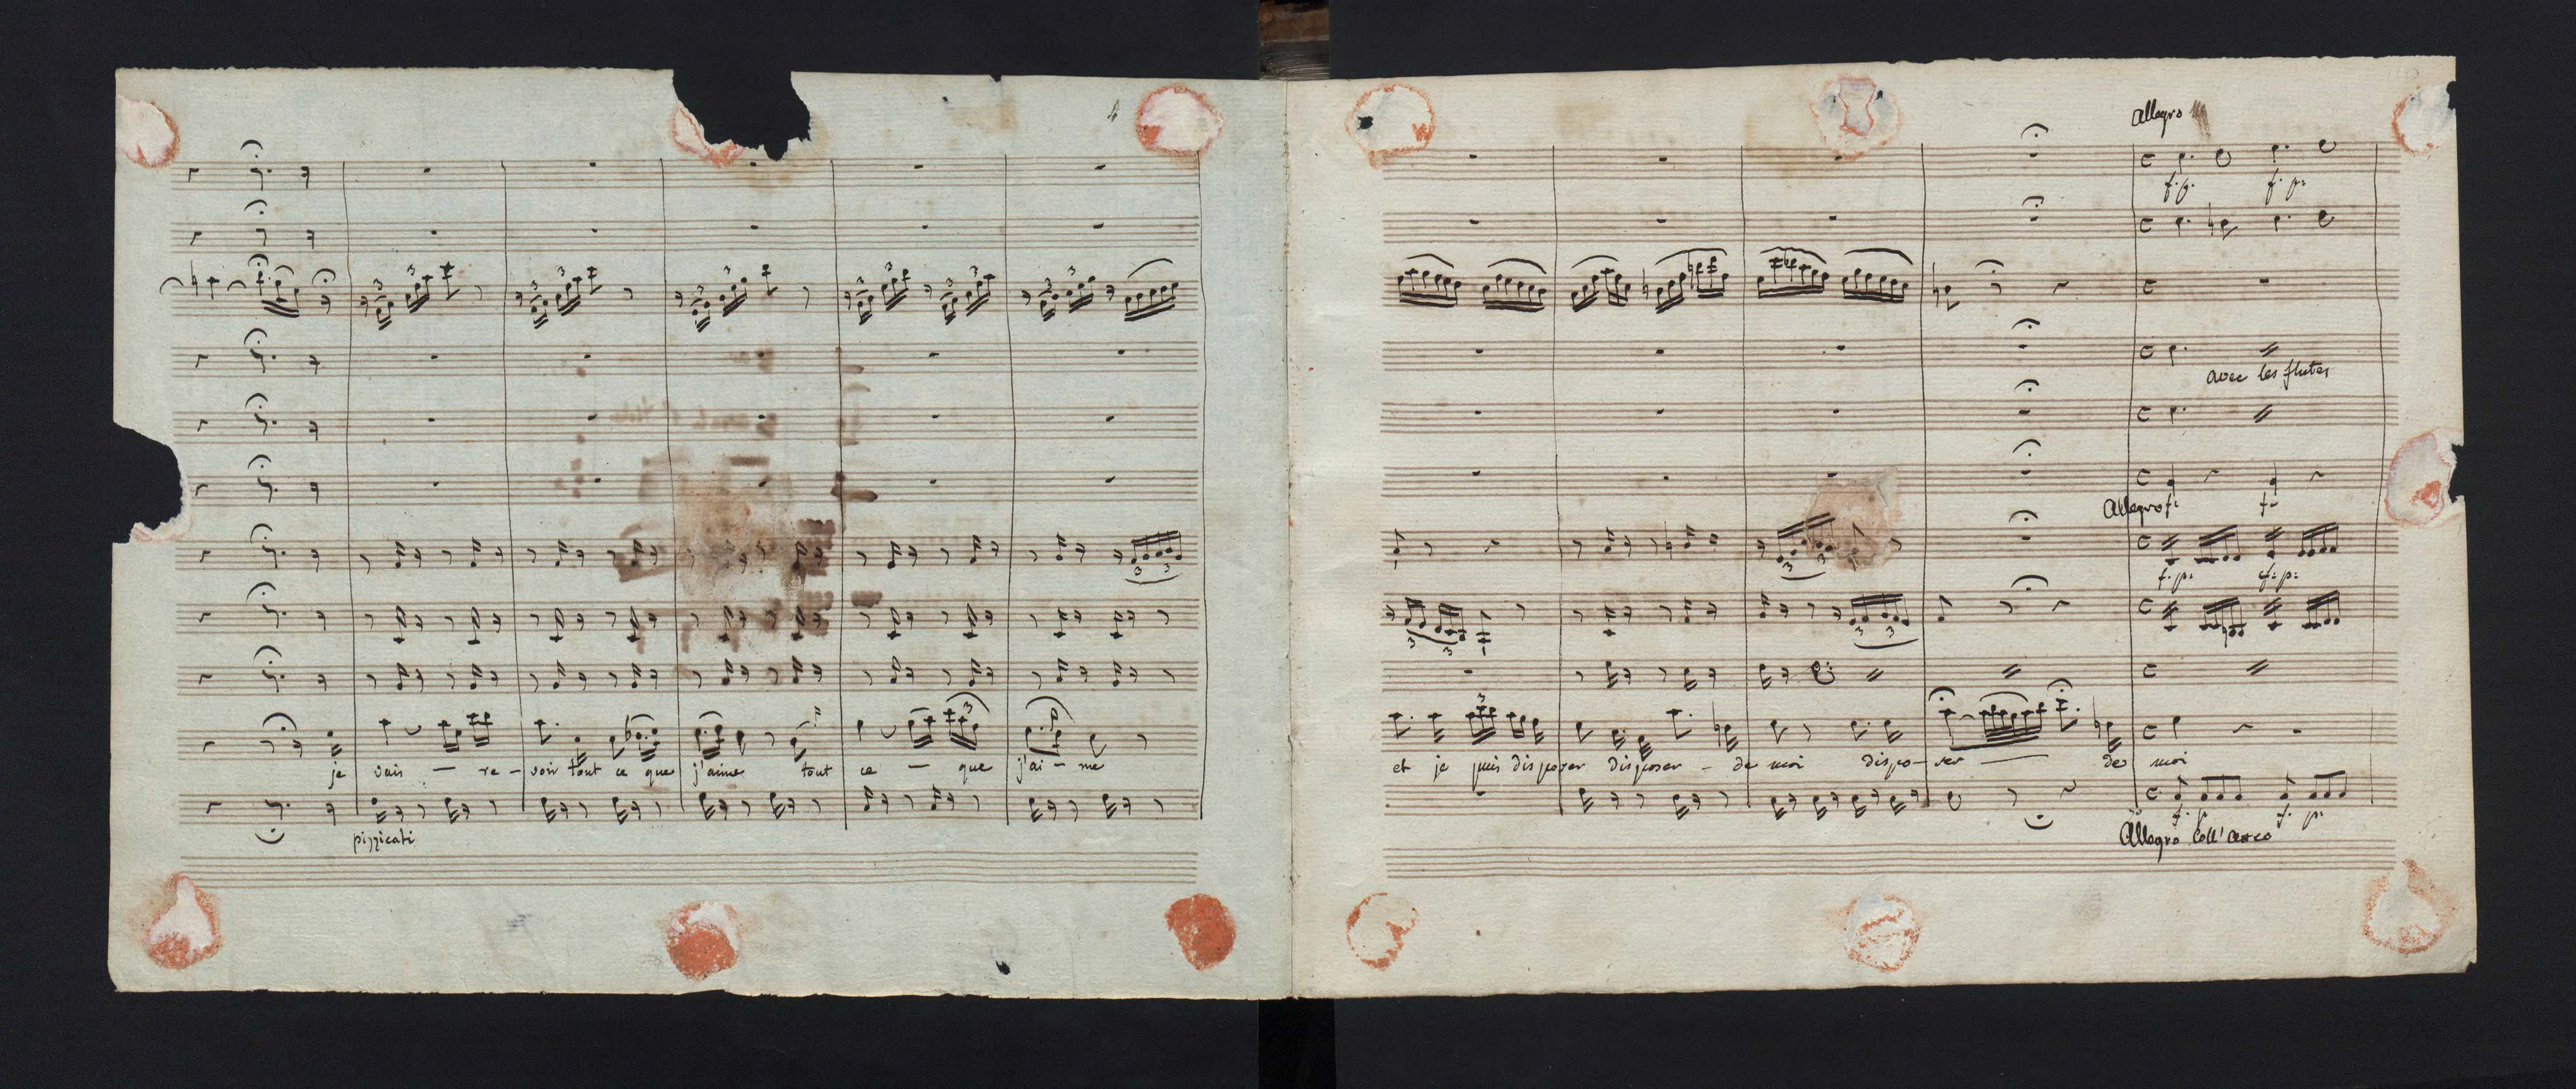 je vais — re - voir tout ce que j'aime tout ce — que j'ai - me
pizzicati
allegro
f. p. f. p.
avec les flutes
Allegro f: f:
f. p: f: p:
et je puis disposer disposer - de moi dispo - ser — de moi
f. p f. p:
Allegro Coll' arco